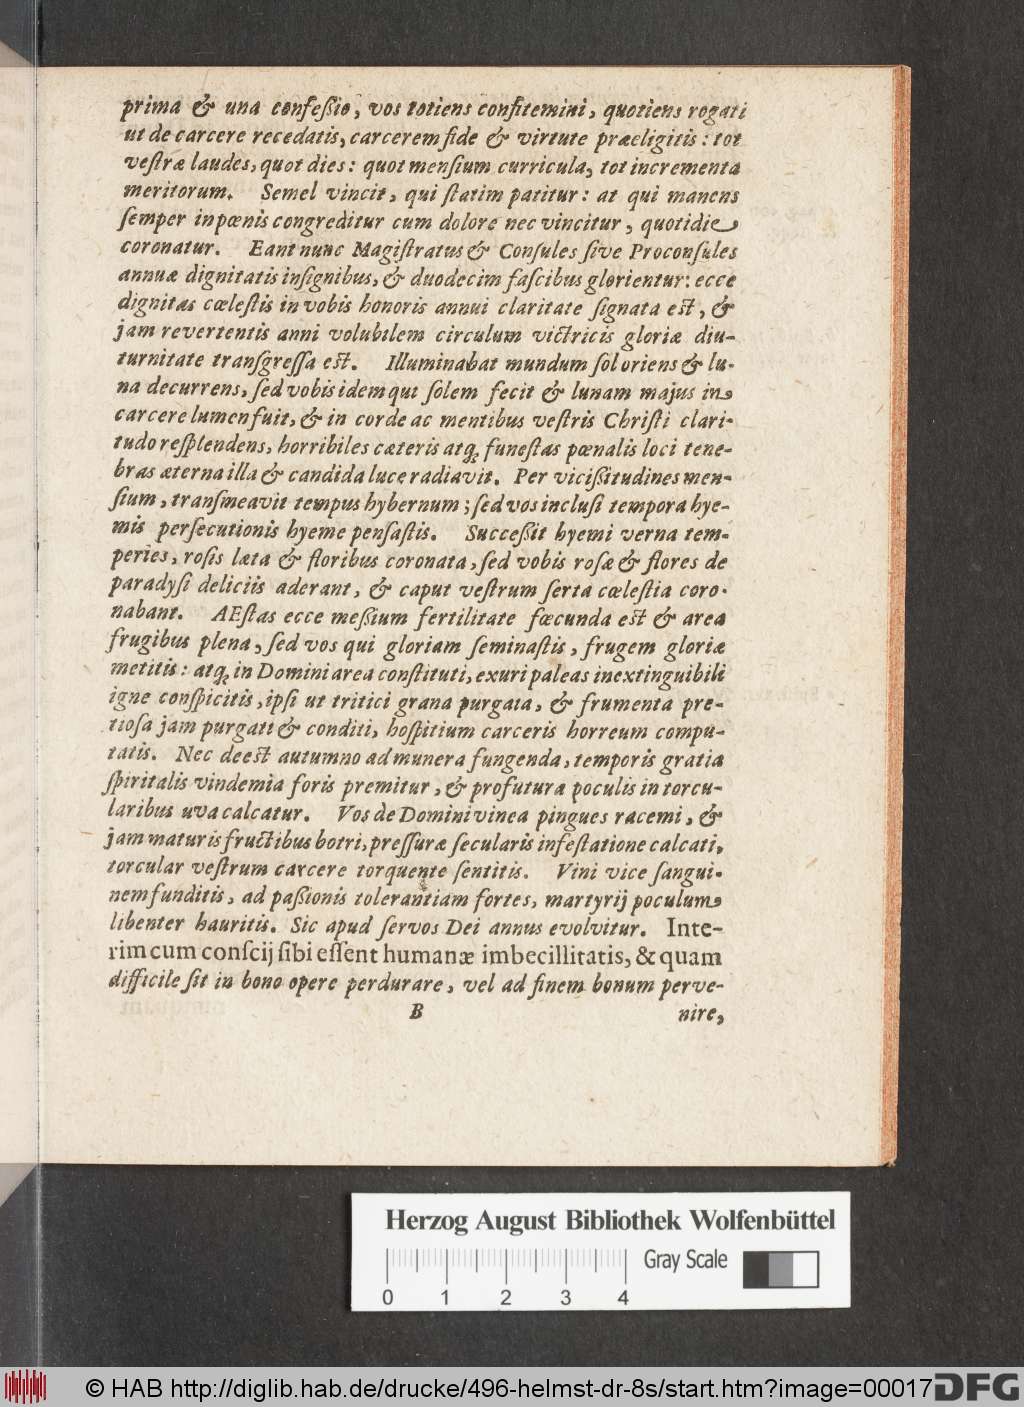 prima & una confeßio, vos totiens confitemini, quotiens rogati
ut de carcere recedatis, carcerem fide & virtute præeligitis: tot
veſtræ laudes, quot dies: quot menſium curricula, tot incrementa
meritorum. Semel vincit, qui ſtatim patitur: at qui manens
ſemper in pœnis congreditur cum dolore nec vincitur, quotidie
coronatur. Eant nunc Magiſtratus & Conſules ſive Proconſules
annuæ dignitatis inſignibus, & duodecim faſcibus glorientur: ecce
dignitas cœleſtis in vobis honoris annui claritate ſignata eſt, &
jam revertentis anni volubilem circulum victricis gloriæ diu-
turnitate tranſgreſſa eſt. Illuminabat mundum ſol oriens & lu-
na decurrens, ſed vobis idem qui ſolem fecit & lunam majus in
carcere lumen fuit, & in corde ac mentibus veſtris Chriſti clari-
tudo reſplendens, horribiles cæteris atq; funeſtas pœnalis loci tene-
bras æterna illa & candida luce radiavit. Per vicißitudines men-
ſium, tranſmeavit tempus hybernum; ſed vos incluſi tempora hye-
mis perſecutionis hyeme penſaſtis. Succeßit hyemi verna tem-
peries, roſis læta & floribus coronata, ſed vobis roſæ & flores de
paradyſi deliciis aderant, & caput veſtrum ſerta cœleſtia coro-
nabant. AEſtas ecce meßium fertilitate fœcunda eſt & area
frugibus plena, ſed vos qui gloriam ſeminaſtis, frugem gloriæ
metitis: atq; in Domini area conſtituti, exuri paleas inextinguibili
igne conſpicitis, ipſi ut tritici grana purgata, & frumenta pre-
tioſa jam purgati & conditi, hoſpitium carceris horreum compu-
tatis. Nec deeſt autumno ad munera fungenda, temporis gratia
ſpiritalis vindemia foris premitur, & profutura poculis in torcu-
laribus uva calcatur. Vos de Domini vinea pingues racemi, &
jam maturis fructibus botri, preſſuræ ſecularis infeſtatione calcati,
torcular veſtrum carcere torquente ſentitis. Vini vice ſangui-
nem funditis, ad paßionis tolerantiam fortes, martyrij poculum
libenter hauritis. Sic apud ſervos Dei annus evolvitur. Inte-
rim cum conſcij ſibi eſſent humanæ imbecillitatis, & quam
difficile ſit in bono opere perdurare, vel ad finem bonum perve-
B nire,
Herzog August Bibliothek Wolfenbüttel
Gray Scale
0 1 2 3 4
© HAB http://diglib.hab.de/drucke/496-helmst-dr-8s/start.htm?image=00017
DFG